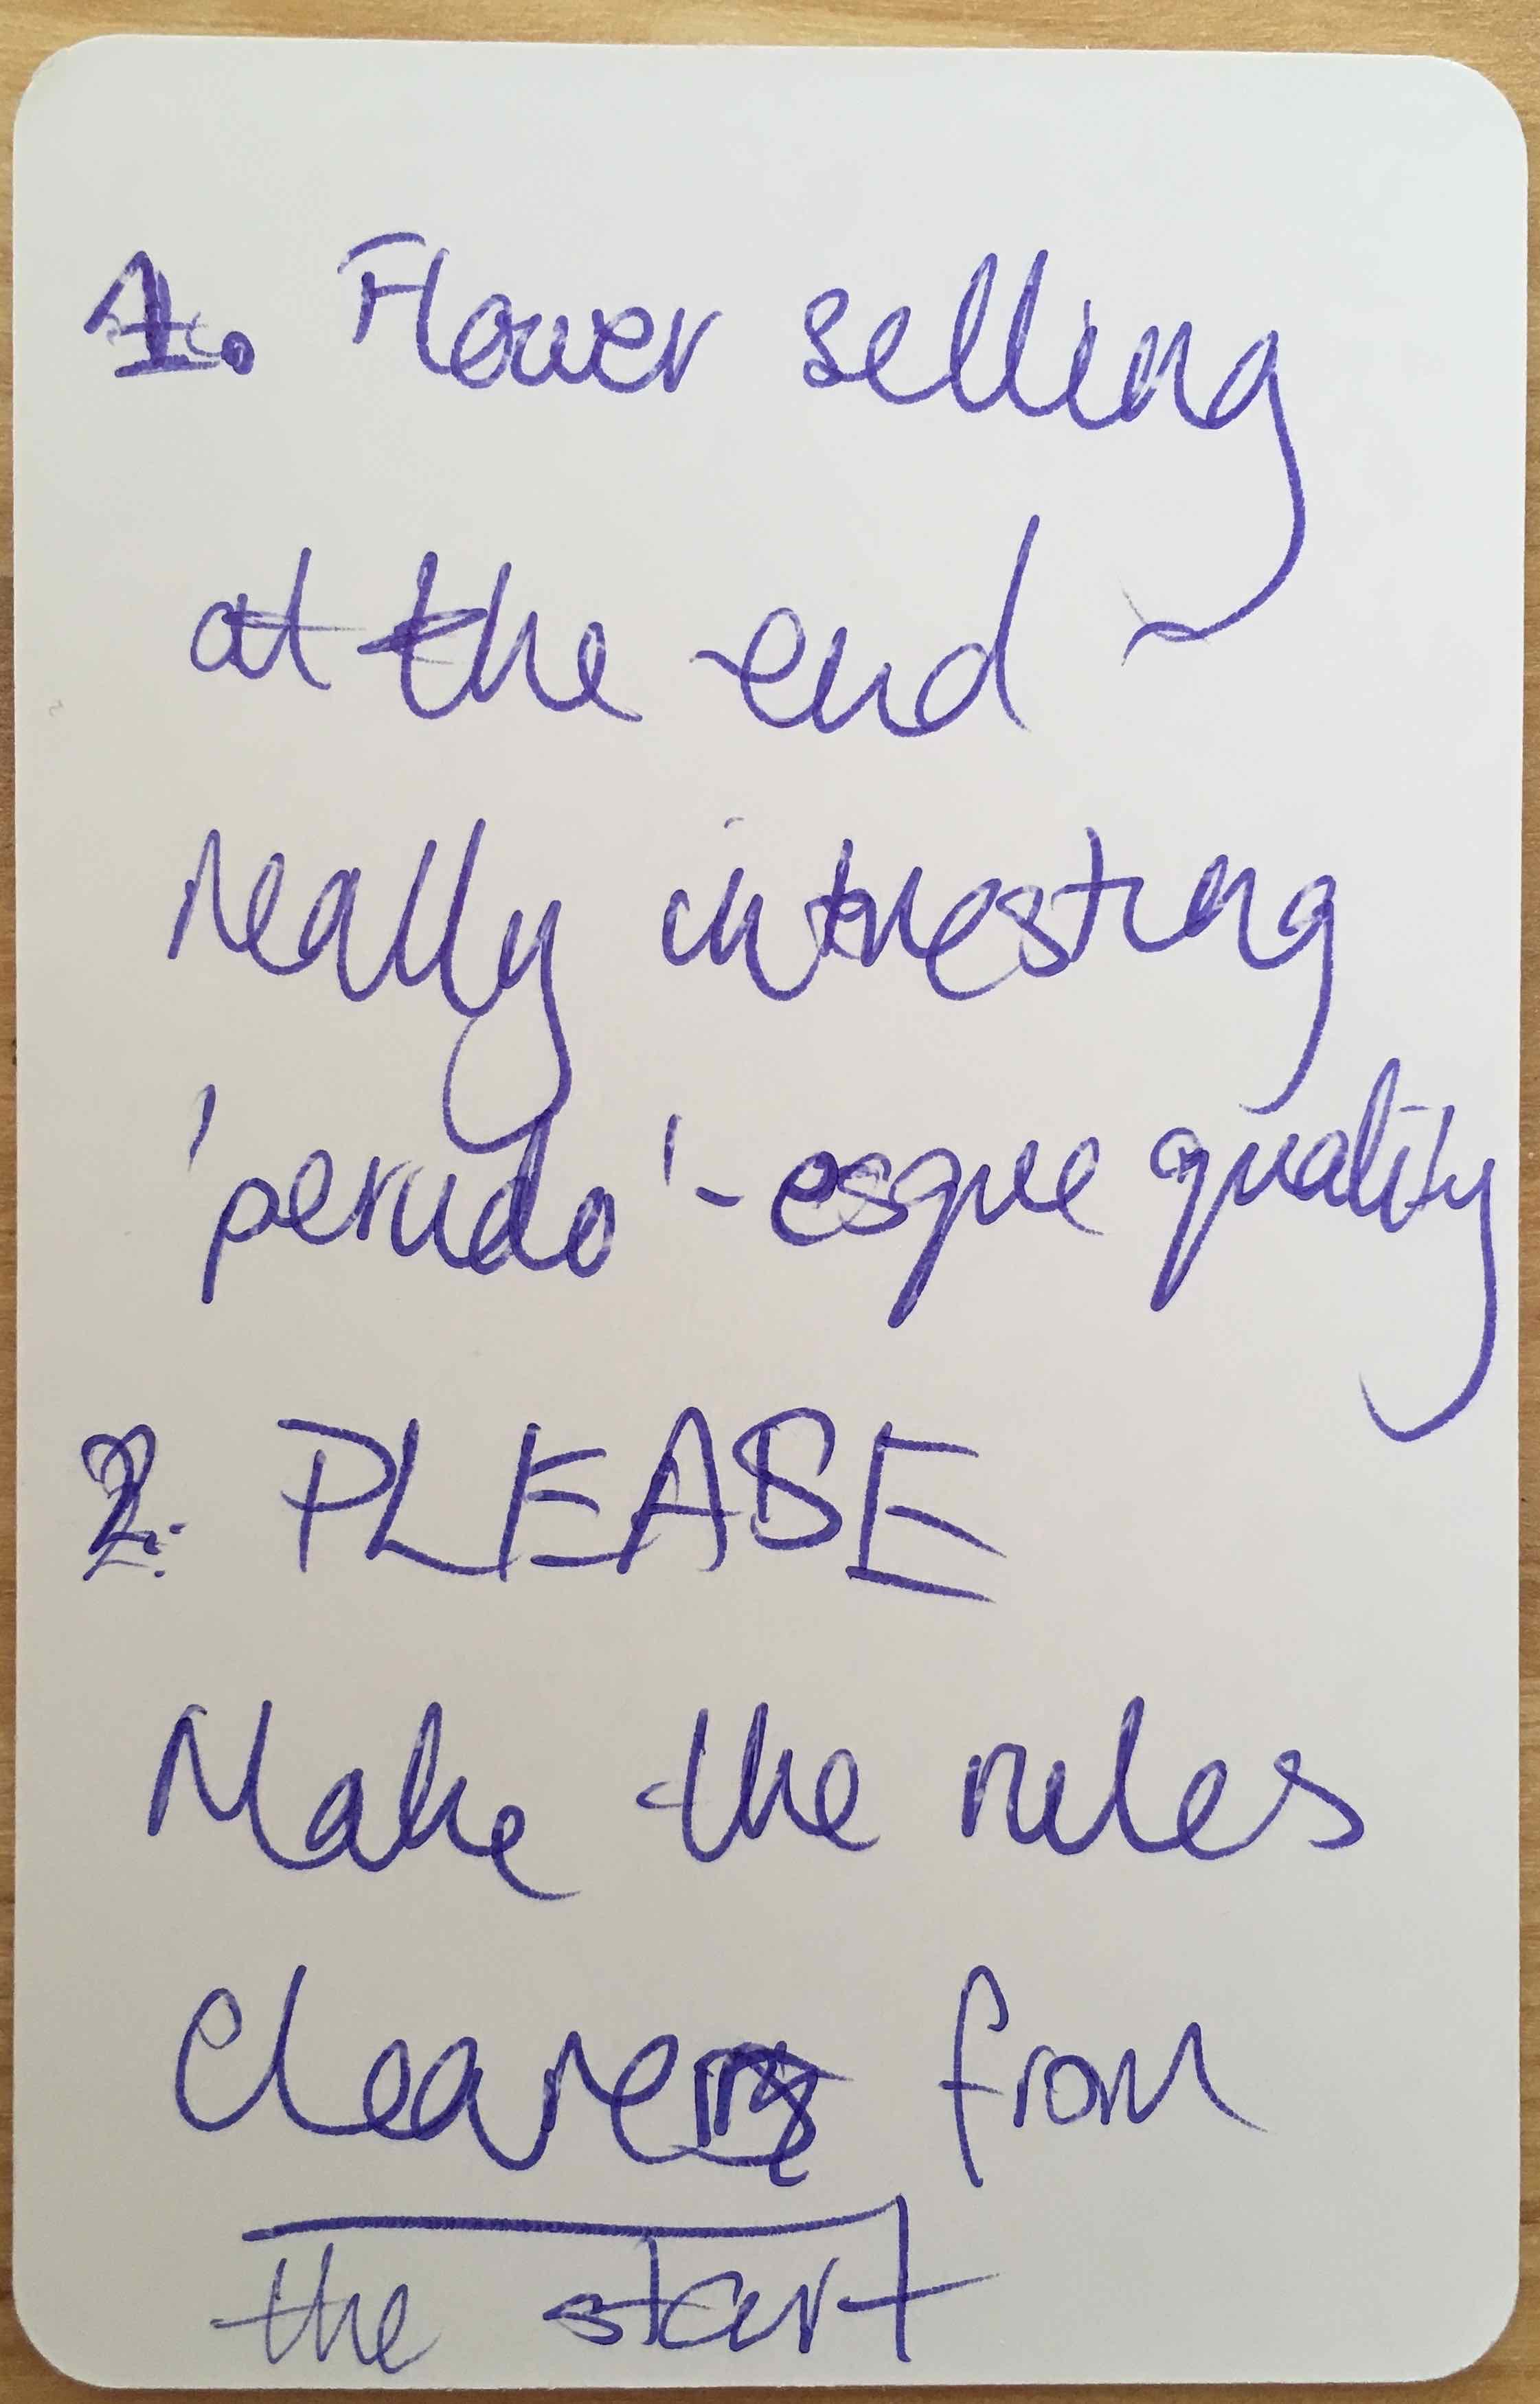 1. Flower selling
at the end -
really interesting
'perudo'-esque quality
2. PLEASE
Make the rules
clearer from
the start